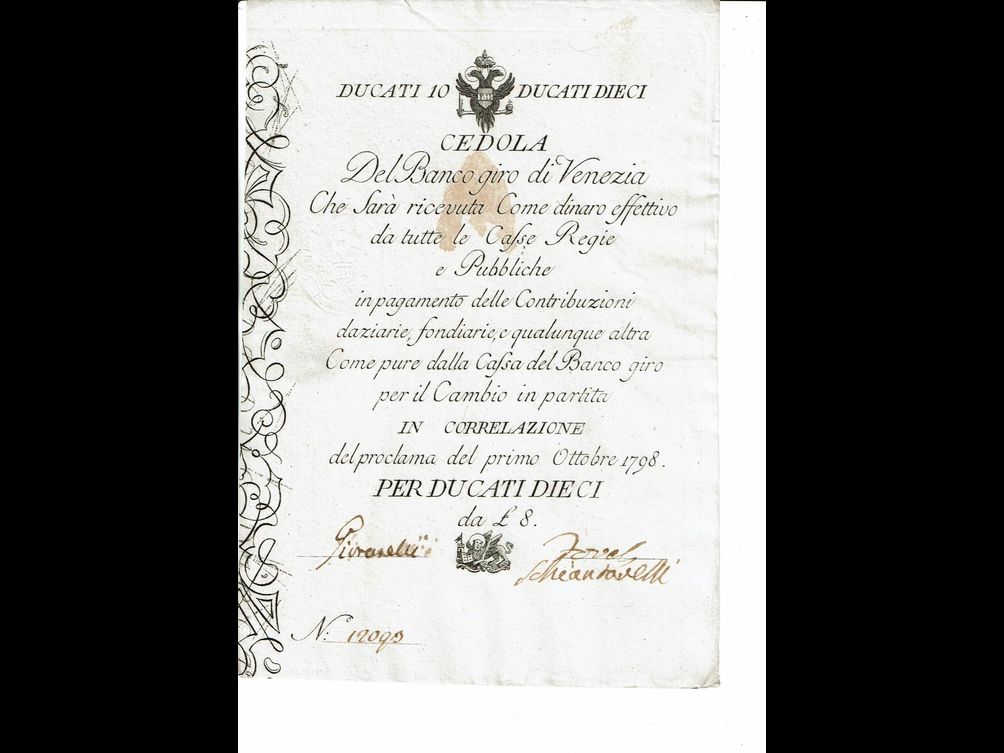 DUCATI 10 DUCATI DIECI
CEDOLA
Del Banco giro di Venezia
Che Sarà ricevuta Come dinaro effettivo
da tutte le Caſse Regie
e Pubbliche
in pagamento delle Contribuzioni
daziarie, fondiarie, e qualunque altra
Come pure dalla Caſsa del Banco giro
per il Cambio in partita
IN CORRELAZIONE
del proclama del primo Ottobre 1798.
PER DUCATI DIECI
da £ 8.
Schiantarelli
N: 12093